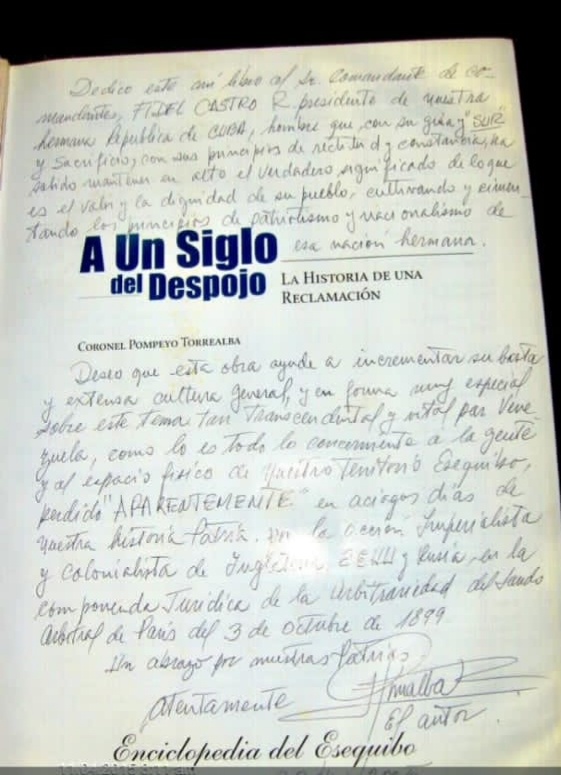 Dedico este mi libro al Sr. Comandante de Co-
mandantes, FIDEL CASTRO R. presidente de nuestra
hermana Republica de CUBA, hombre que, con su guia y "SUR"
y Sacrificio, con sus principios de rectitud y constancia, ha
sabido mantener en alto el verdadero significado de lo que
es el valor y la dignidad de su pueblo, cultivando y cimen-
tando los principios de patriotismo y nacionalismo de
esa nación hermana.
A Un Siglo
del Despojo
La Historia de una
Reclamación
Coronel Pompeyo Torrealba
Deseo que esta obra ayude a incrementar su basta
y extensa cultura general, y en forma muy especial
sobre este tema tan Transcendental y vital par Vene-
zuela, como lo es todo lo concerniente a la gente
y al espacio fisico de Nuestro Territorio Esequibo,
perdido "APARENTEMENTE" en aciagos días de
nuestra historia Patria. por la acción Imperialista
y colonialista de Inglaterra, EEUU y Rusia en la
componenda Juridica de la Arbitrariedad del Laudo
Arbitral de Paris del 3 de Octubre de 1899
Un abrazo por nuestras Patrias
Atentamente
El autor.
Enciclopedia del Esequibo